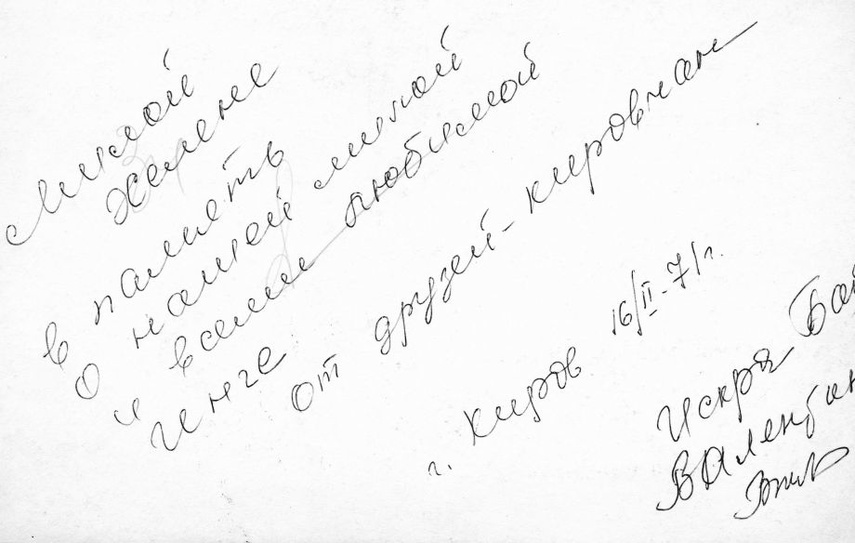 Милой
Желене
в память
о нашей милой
и всеми любимой
Инге
от друзей-кировчан
г. Киров 16/II-71г.
Искра